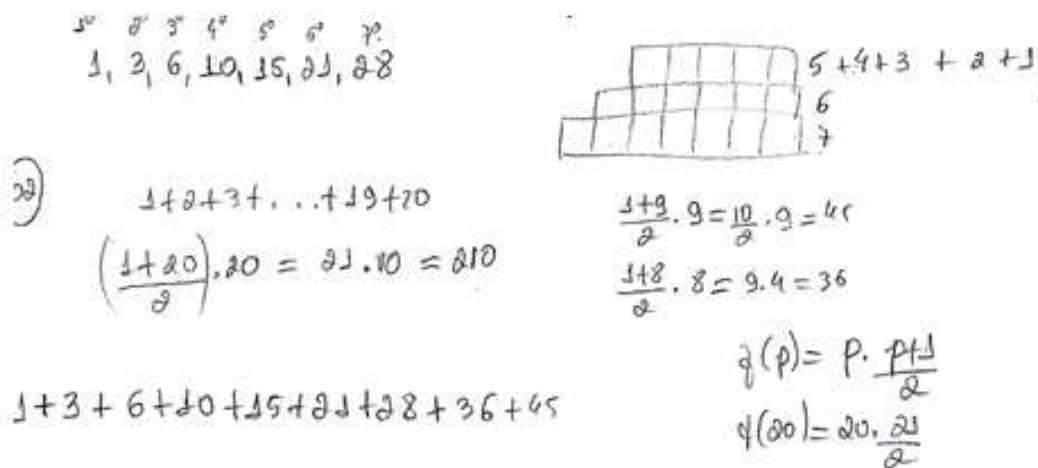 1º 2º 3º 4º 5º 6º 7º
1, 3, 6, 10, 15, 21, 28
5 + 4 + 3 + 2 + 1
6
7
1+2+3+...+19+20
(1+20)/2 . 20 = 21.10 = 210
1+9/2 . 9 = 10/2 . 9 = 45
1+8/2 . 8 = 9.4 = 36
q(p) = p. p+1/2
q(20) = 20. 21/2
1+3+6+10+15+21+28+36+45